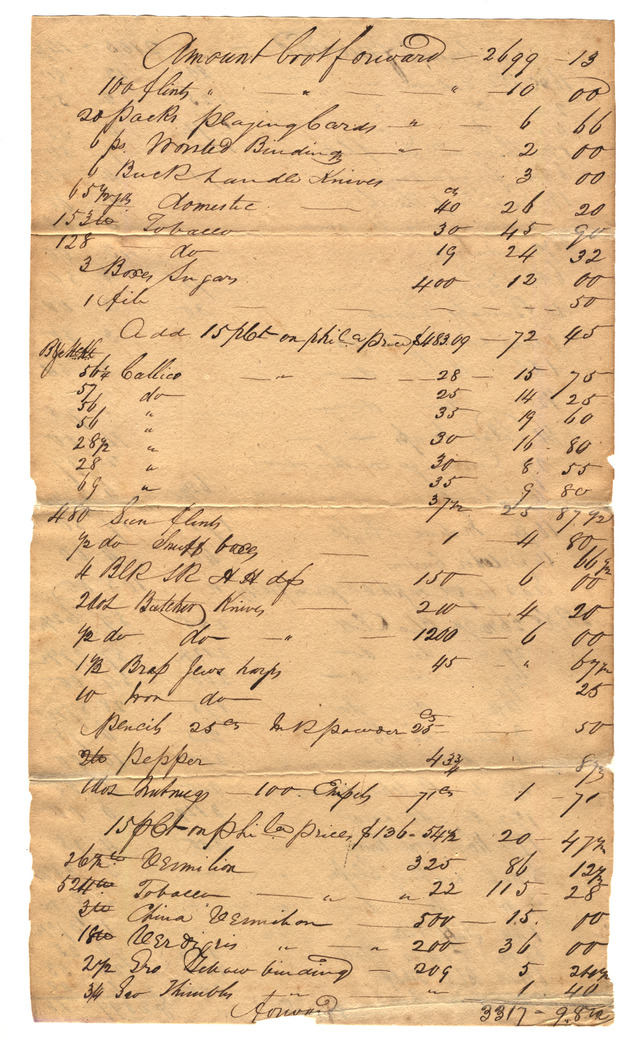 Amount brot forward — 2699 - 13
100 flints " " " - 10 00
20 packs playing Cards " — 6 66
6 ps. Worsted Binding " — 2 00
6 Buck handle Knives — 3 00
65½ yds domestic — cs 40 26 20
153 lb Tobacco 30 45 90
128 do 19 24 32
3 Boxes Sugars 400 12 00
1 file 50
Add 15 pCt on phila price $483.09 — 72 45
56¼ Callico — " — 28 - 15 75
57 do 25 14 25
56 " 35 19 60
56 " 30 16 80
28½ " 30 8 55
28 " 35 9 80
69 " 37½ 25 87½
480 Gun flints 1 - 4 80
½ do Snuff boxes 66½
4 Blk Sk Hdfs — 150 6 00
2 dos Butcher Knives — 210 - 4 20
½ do do — " — 1200 - 6 00
1½ Brass Jews harps 45 " 67½
10 Iron do 25
Pencils 25 cs Ink powder 25 cs — 50
2 lb pepper 43¾ 87½
1 dos Nutmegs — 100 — 71 cs 1 - 71
15 pCt on phila prices $136-54½ 20 - 47½
26½ lb Vermilion 325 86 12½
524 lb Tobacco — " " 22 115 - 28
3 lb China Vermilion — 500 — 15. 00
18 lb Verdigris " — " 200 36 00
2½ Gro binding — 209 5
¾ Gro Thimbles " — " 1 40
forward 3317 - 98½